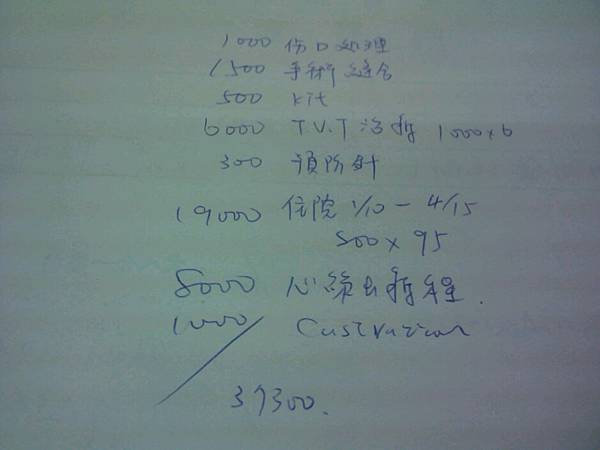 1000 伤口処理
1500 手術縫合
500 kit
6000 T.V.T 治療 1000x6
300 預防針
19000 住院 1/10 - 4/15
200 x 95
8000 心絲虫療程.
1000 Castration
37300.